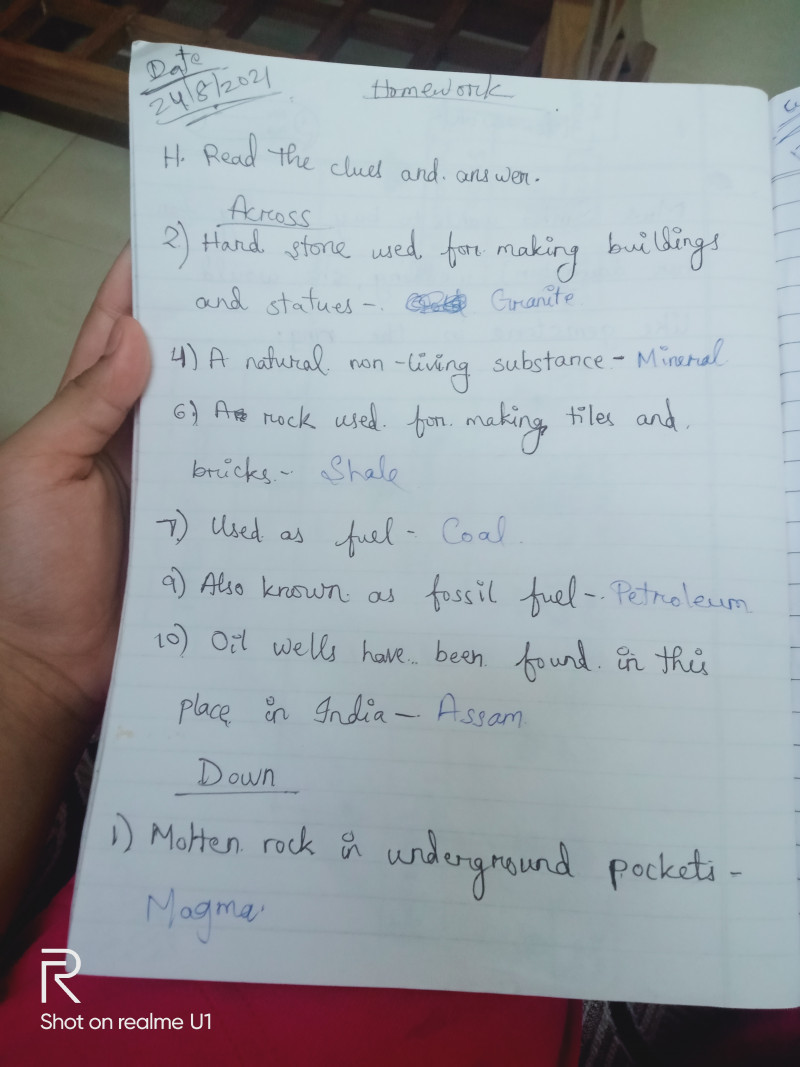 Date
24/8/2021
Homework
H. Read the clues and answer.
Across
2) Hard stone used for making buildings
and statues - Granite
4) A natural non-living substance - Mineral
6) A rock used for making tiles and
bricks - Shale
7) Used as fuel - Coal
9) Also known as fossil fuel - Petroleum
10) Oil wells have been found in this
place in India - Assam
Down
1) Molten rock in underground pockets -
Magma.
R
Shot on realme U1